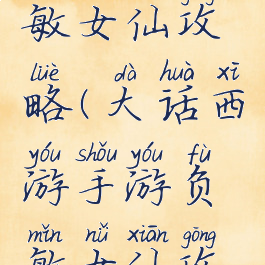 敏女仙攻
lüè dà huà xī
略(大话西
yóu shǒu yóu fù
游手游负
mǐn nǚ xiān gōng
敏女仙攻